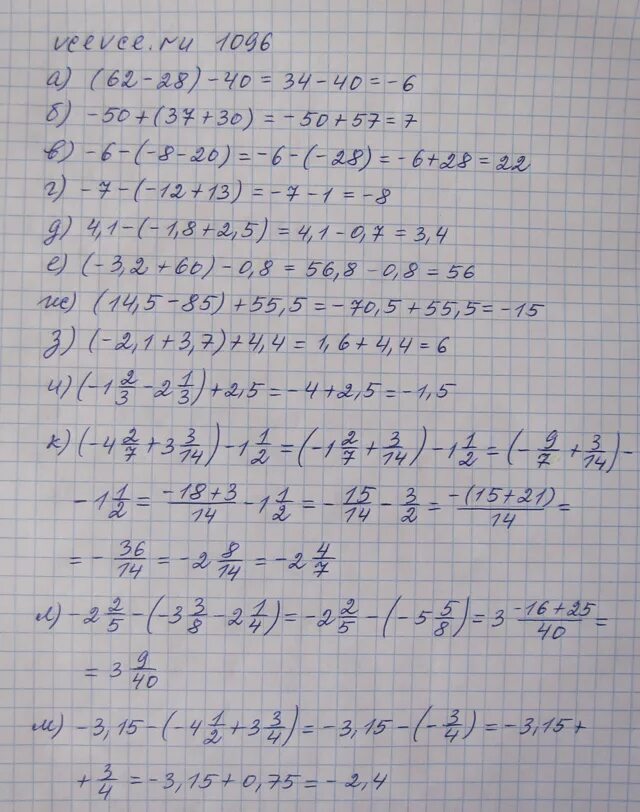 vcevce.ru 1096
а) (62-28)-40 = 34-40 = -6
б) -50+(37+30) = -50+57 = 7
в) -6-(-8-20) = -6-(-28) = -6+28 = 22
г) -7-(-12+13) = -7-1 = -8
д) 4,1-(-1,8+2,5) = 4,1-0,7 = 3,4
е) (-3,2+60)-0,8 = 56,8-0,8 = 56
ж) (14,5-85)+55,5 = -70,5+55,5 = -15
з) (-2,1+3,7)+4,4 = 1,6+4,4 = 6
и) (-1 2/3 - 2 1/3)+2,5 = -4+2,5 = -1,5
к) (-4 2/7 + 3 3/14) - 1 1/2 = (-1 2/7 + 3/14) - 1 1/2 = (-9/7 + 3/14) -
- 1 1/2 = (-18+3)/14 - 1 1/2 = -15/14 - 3/2 = -(15+21)/14 =
= -36/14 = -2 8/14 = -2 4/7
л) -2 2/5 - (-3 3/8 - 2 1/4) = -2 2/5 - (-5 5/8) = 3 (-16+25)/40 =
= 3 9/40
м) -3,15-(-4 1/2 + 3 3/4) = -3,15-(-3/4) = -3,15+
+ 3/4 = -3,15+0,75 = -2,4